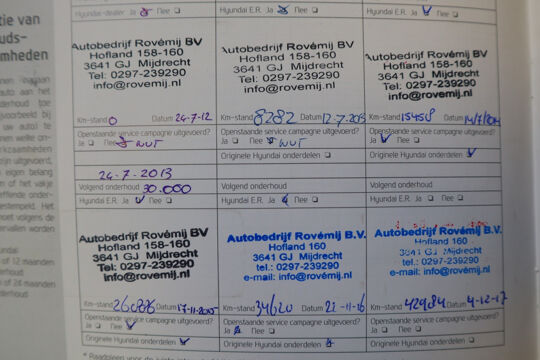 tie van
uds-
mheden
Hyundai-dealer Ja Nee
Hyundai E.R. Ja Nee
Hyundai E.R. Ja Nee
Autobedrijf Rovémij BV
Hofland 158-160
3641 GJ Mijdrecht
Tel: 0297-239290
info@rovemij.nl
Km-stand 0 Datum 24-7-12
Openstaande service campagne uitgevoerd?
Ja Nee NVT
24-7-2013
Volgend onderhoud 30.000
Hyundai E.R. Ja Nee
Autobedrijf Rovémij BV
Hofland 158-160
3641 GJ Mijdrecht
Tel: 0297-239290
info@rovemij.nl
Km-stand 8282 Datum 12-7-2013
Openstaande service campagne uitgevoerd?
Ja Nee NVT
Originele Hyundai onderdelen
Volgend onderhoud
Hyundai E.R. Ja Nee
Autobedrijf Rovémij BV
Hofland 158-160
3641 GJ Mijdrecht
Tel: 0297-239290
info@rovemij.nl
Km-stand 15458 Datum
Openstaande service campagne uitgevoerd?
Ja Nee
Originele Hyundai onderdelen
Volgend onderhoud
Hyundai E.R. Ja Nee
Autobedrijf Rovémij BV
Hofland 158-160
3641 GJ Mijdrecht
Tel: 0297-239290
info@rovemij.nl
Km-stand Datum 17-11-2015
Openstaande service campagne uitgevoerd?
Ja Nee
Originele Hyundai onderdelen
Autobedrijf Rovémij B.V.
Hofland 160
3641 GJ Mijdrecht
tel.: 0297-239290
e-mail: info@rovemij.nl
Km-stand 34620 Datum 22-11-16
Openstaande service campagne uitgevoerd?
Ja Nee
Originele Hyundai onderdelen
Autobedrijf Rovémij B.V.
Hofland 160
3641 GJ Mijdrecht
tel.: 0297-239290
e-mail: info@rovemij.nl
Km-stand 42984 Datum 4-12-17
Openstaande service campagne uitgevoerd?
Ja Nee
Originele Hyundai onderdelen